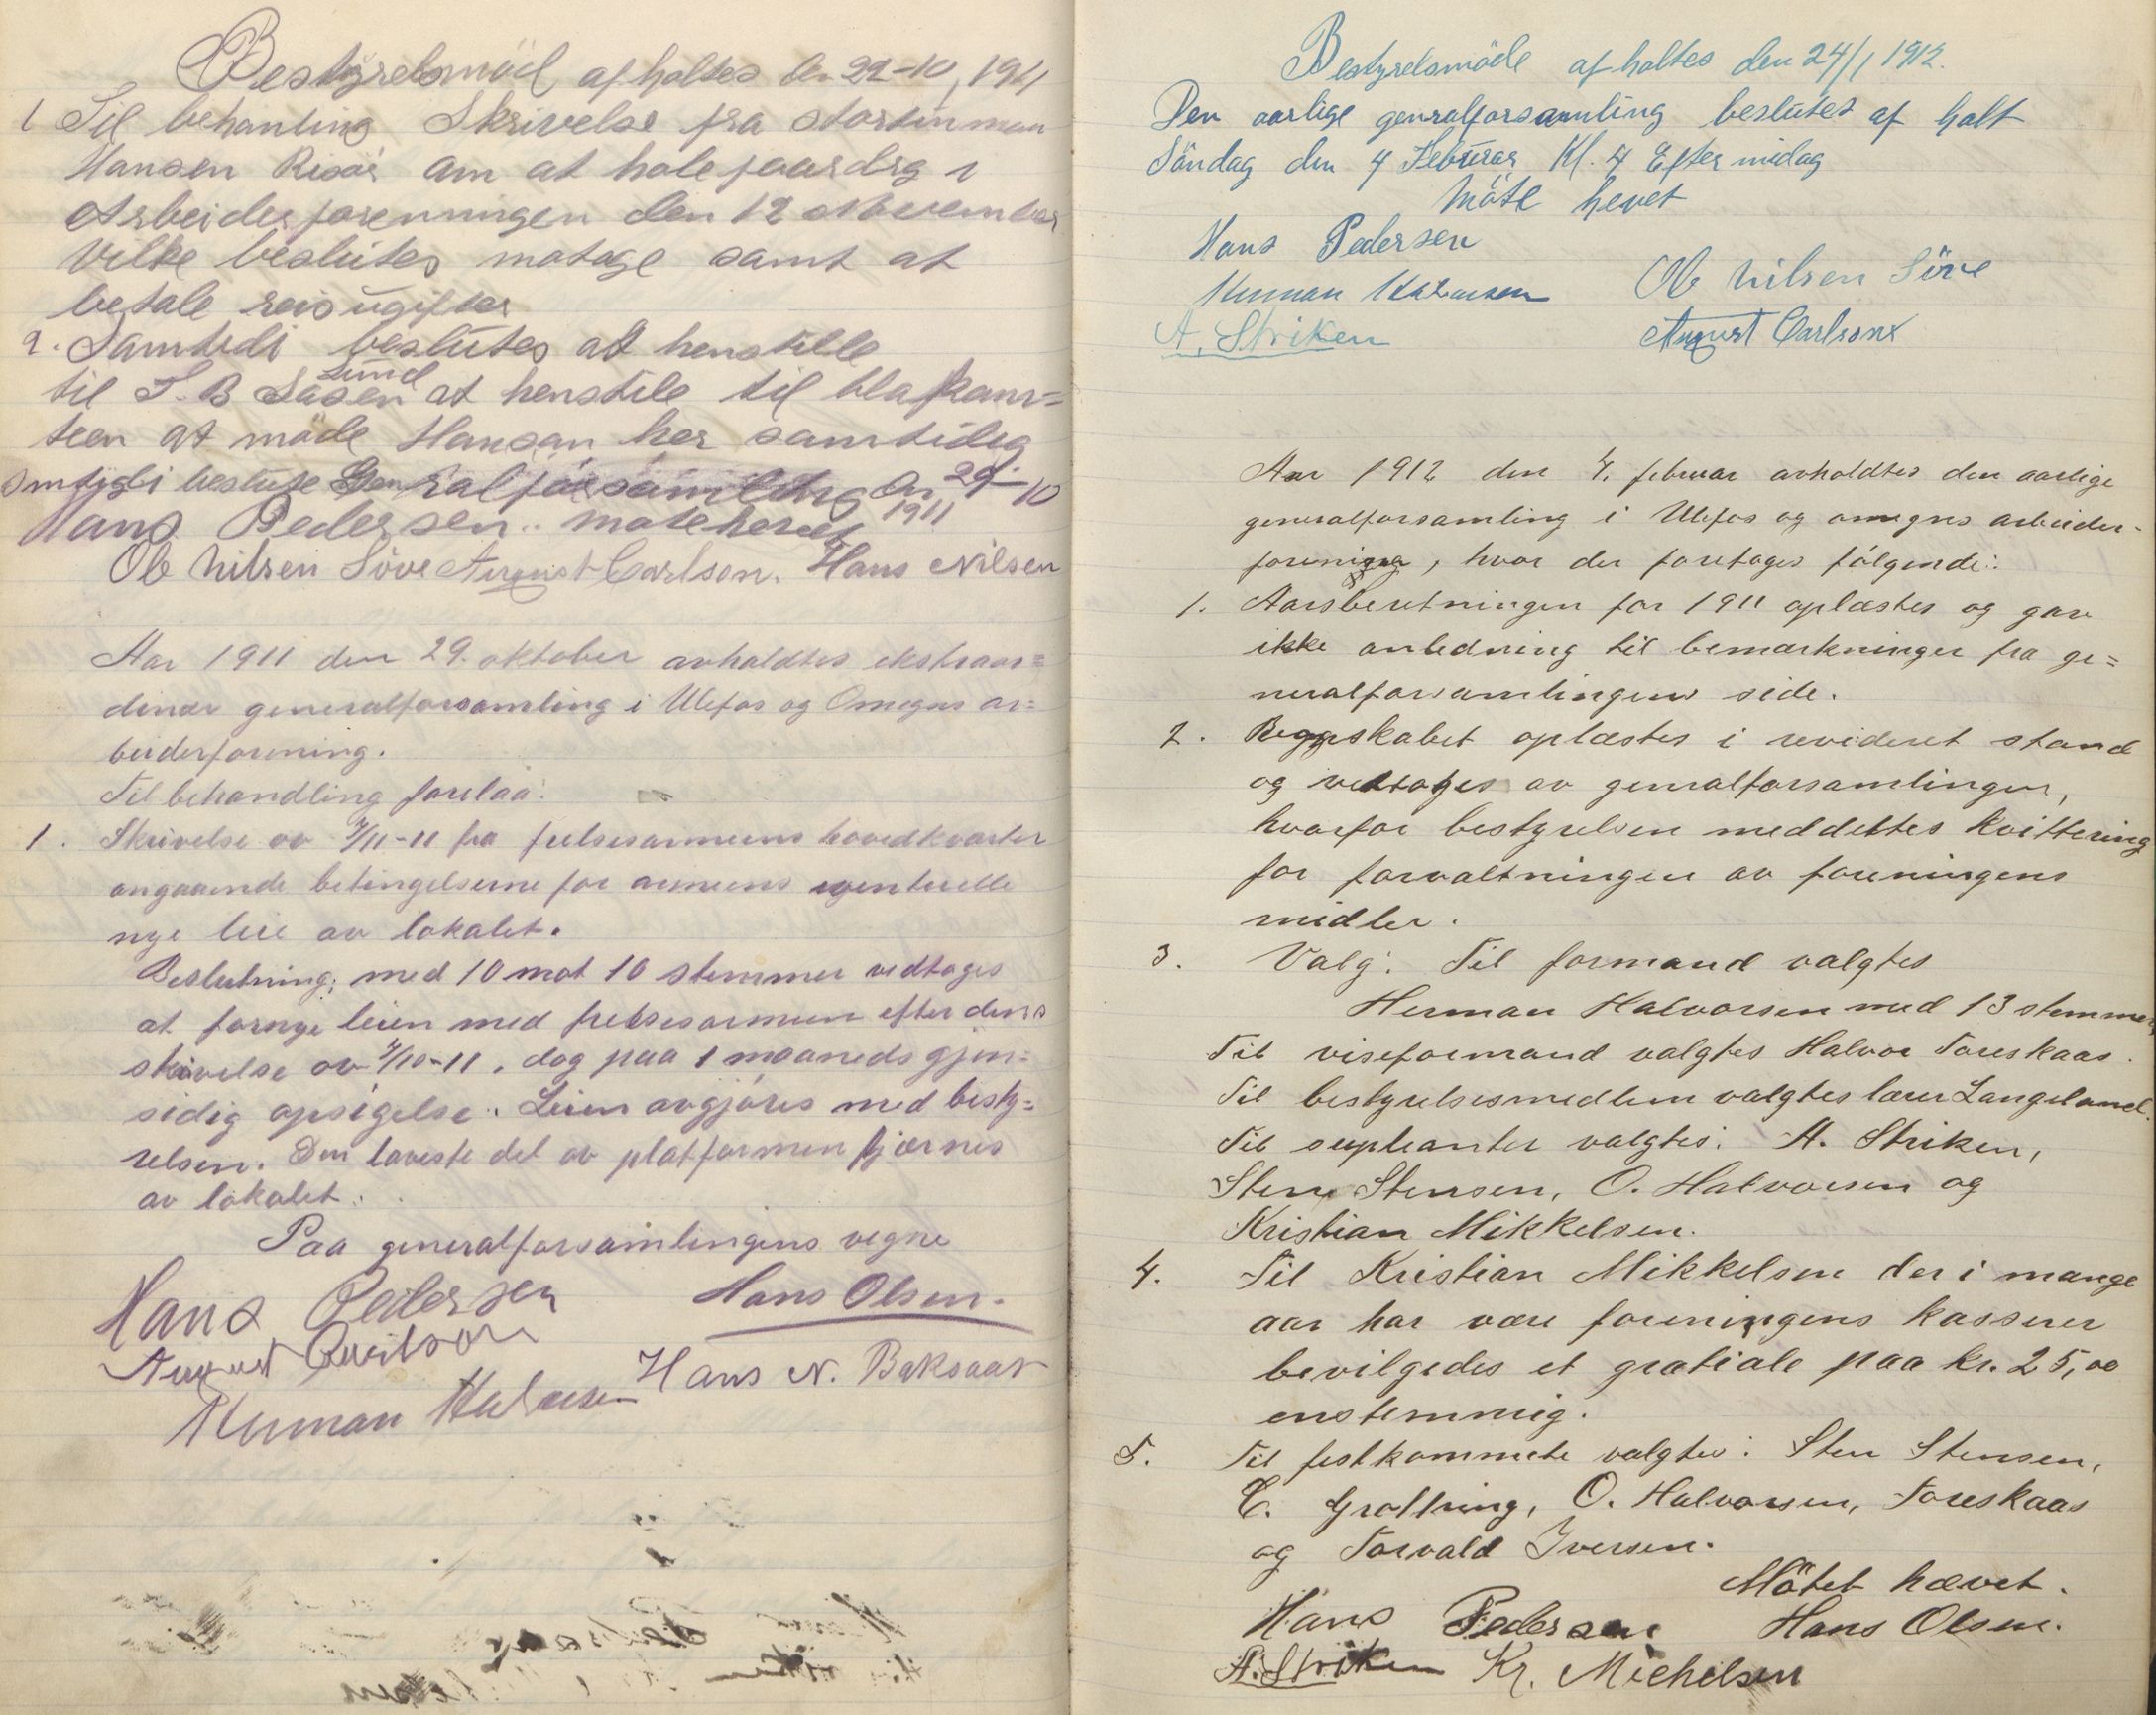 Bestyrelsmöd afholtes den 22-10, 1911
1 Til behanling Skrivelse fra stortinman
Hansen Risör am at hole foardrg i
Arbeiderforenningen den 12 November
Vilke beslutes motage samt at
betale reisugifter
2. Samtidi beslutes at henstille
til S. B Lasen Lund at henstile til blafkars=
teen at möde Hansen her samtidig
Smtidi beslute Genralforsamling den 29-10
Hans Pedersen. mote hevet 1911
Ole Nilsen Söve August Carlson. Hans Nilsen
Aar 1911 den 29. oktober avholdtes ekstraor=
dinær generalforsamling i Ulefos og Omegns ar=
beiderforening.
Til behandling forelaa:
1. Skrivelse av 4/11-11 fra frelsesarmeens hovedkvarter
angaaende betingelserne for armeens eventuelle
nye leie av lokalet.
Beslutning; med 10 mot 10 stemmer vedtoges
at fornye leien med frelsesarmeen efter dens
skrivelse av 4/10-11, dog paa 1 maaneds gjen=
sidig opsigelse. Leien avgjöres med besty=
relsen. Den laveste del av platformen fjærnes
av lokalet.
Paa generalforsamlingens vegne
Hans Pedersen Hans Olsen.
August Carlson Hans N. Baksaas
Herman Halvorsen
Bestyrelsmöde afholtes den 24/1 1912.
Den aarlige genralforsamling beslutes af holt
Söndag den 4 Februar Kl. 4 Eftermidag
Möte hevet
Hans Pedersen
Herman Halvorsen Ole Nilsen Söve
A. Striken August Carlson
Aar 1912 den 4. februar avholdtes den aarlige
generalforsamling i Ulefos og omegns arbeider-
forening, hvor der foretoges fölgende:
1. Aarsberetningen for 1911 oplæstes og gav
ikke anledning til bemærkninger fra ge=
neralforsamlingens side.
2. Regnskabet oplæstes i revideret stand
og vedtoges av generalforsamlingen,
hvorfor bestyrelsen meddeltes kvittering
for forvaltningen av foreningens
midler.
3. Valg: Til formand valgtes
Herman Halvorsen med 13 stemmer
Til viseformand valgtes Halvor Toreskaas.
Til bestyrelsesmedlem valgtes lærer Langeland.
Til supleanter valgtes: A. Striken,
Sten Stensen, O. Halvorsen og
Kristian Mikkelsen.
4. Til Kristian Mikkelsen der i mange
aar har være foreningens kasserer
bevilgedes et gratiale paa kr. 25,00
enstemmig.
5. Til festkommete valgtes: Sten Stensen,
C. Grotning, O. Halvorsen, Toreskaas
og Torvald Iversen.
Mötet hævet.
Hans Pedersen Hans Olsen.
A. Striken Kr. Michelsen